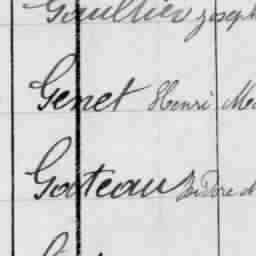 Gaultier Joseph
Genet Henri
Gateau Isidore